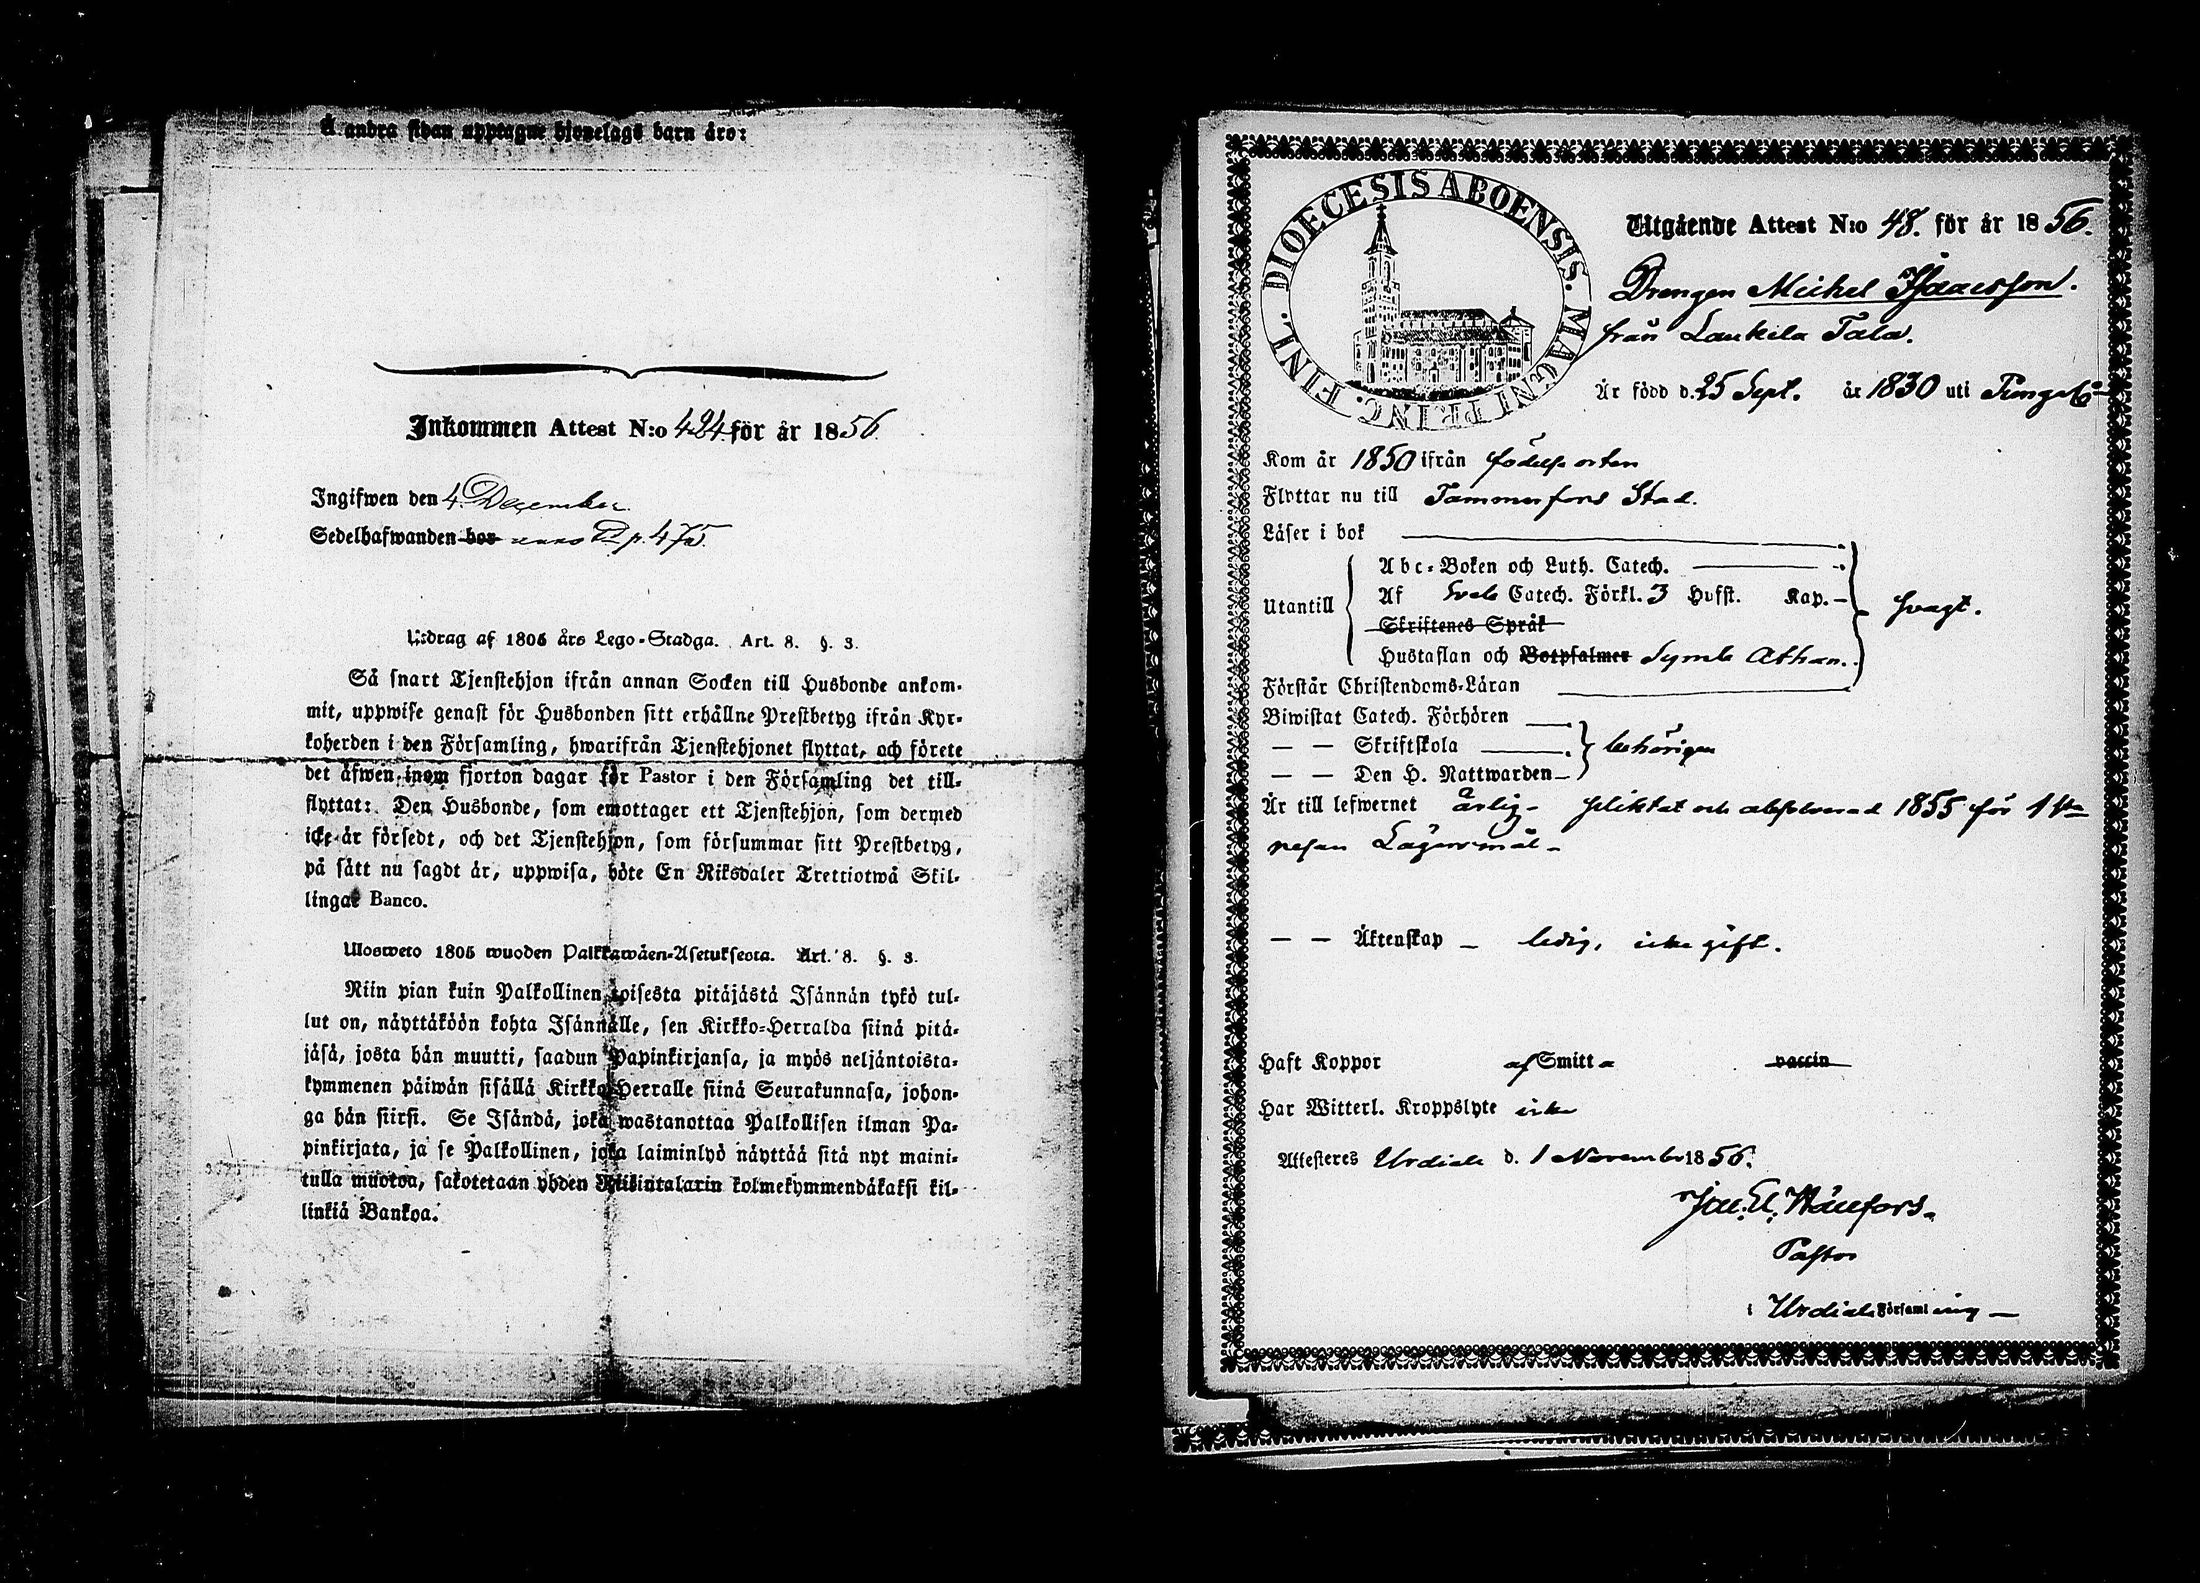 Å andra sidan upptagne hjonelags barn äro:
Inkommen Attest N:o 424 för år 1856.
Ingifwen den 4. December
Sedelhafwanden bor p. 475.
Utdrag af 1805 års Lego-Stadga. Art. 8. §. 3.
Så snart Tjenstehjon ifrån annan Socken till Husbonde ankom-
mit, uppwise genast för Husbonden sitt erhållne Prestbetyg ifrån Kyr-
koherden i den Församling, hwarifrån Tjenstehjonet flyttat, och förete
det äfwen inom fjorton dagar för Pastor i den Församling det till-
flyttat: Den Husbonde, som emottager ett Tjenstehjon, som dermed
icke är försedt, och det Tjenstehjon, som försummar sitt Prestbetyg,
på sätt nu sagdt är, uppwisa, böte En Riksdaler Trettiotwå Skil-
lingar Banco.
Ulosweto 1805 wuoden Palkkawäen-Asetuksesta. Art. 8. §. 3.
Niin pian kuin Palkollinen toisesta pitäjästä Isännän tykö tul-
lut on, näyttäköön kohta Isännälle, sen Kirkko-Herralda siinä pitä-
jäsä, josta hän muutti, saadun Papinkirjansa, ja myös neljäntoista-
kymmenen päiwän sisällä Kirkko-Herralle siinä Seurakunnasa, johon-
ga hän siirsi. Se Isändä, joka wastanottaa Palkollisen ilman Pa-
pinkirjata, ja se Palkollinen, joka laiminlyö näyttää sitä nyt maini-
tulla muotoa, sakotetaan yhden Riikintalarin kolmekymmendäkaksi kil-
linkiä Bankoa.
DIOECESIS ABOENSIS. MAGNI PRINC. FINL.
Utgående Attest N:o 48. för år 1856.
Drengen Michel Isaacsson.
från Laukela Tala.
Är född d. 25 Sept. år 1830 uti Pungal
Kom år 1850 ifrån födelse orten
Flyttar nu till Tammerfors Stad.
Läser i bok
Utantill
Abc-Boken och Luth. Catech.
Af Sveb. Catech. Förkl. 3 Hufst. Kap. svagt.
Skriftenes Språk
Hustaflan och Botpsalmer Symb. Athan.
Förstår Christendoms-Läran
Biwistat Catech. Förhören
— — Skriftskola behörigen
— — Den H. Nattwarden
Är till lefwernet ärlig - pliktat och absolverad 1855 för 1sta
resan Lägersmål -
— — Äktenskap - ledig, icke gift.
Haft Koppor af Smitt vaccin
Har Witterl. Kroppslyte icke
Attesteres Urdiala d. 1 November 1856.
Pastor
i Urdiala Församling